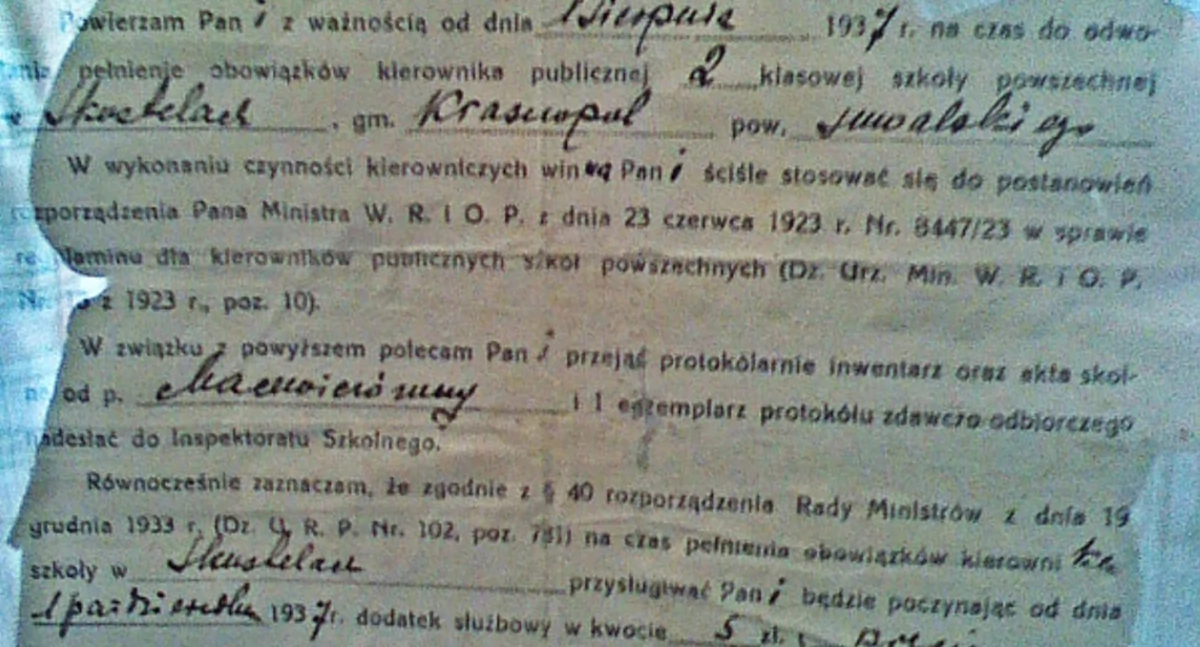 Powierzam Pani z ważnością od dnia 1 Sierpnia 1937 r. na czas do odwo-
łania pełnienie obowiązków kierownika publicznej 2 klasowej szkoły powszechnej
w Skustelach, gm. Krasnopol pow. suwalskiego
W wykonaniu czynności kierowniczych winną Pani ściśle stosować się do postanowień
rozporządzenia Pana Ministra W. R. i O. P. z dnia 23 czerwca 1923 r. Nr. 8447/23 w sprawie
regulaminu dla kierowników publicznych szkół powszechnych (Dz. Urz. Min. W. R. i O. P.
z 1923 r., poz. 10).
W związku z powyższem polecam Pani przejąć protokólarnie inwentarz oraz akta szkol-
ne od p. i 1 egzemplarz protokółu zdawczo odbiorczego
nadesłać do Inspektoratu Szkolnego.
Równocześnie zaznaczam, że zgodnie z § 40 rozporządzenia Rady Ministrów z dnia 19
grudnia 1933 r. (Dz. U. R. P. Nr. 102, poz. 781) na czas pełnienia obowiązków kierownika
szkoły w Skustelach przysługiwać Pani będzie poczynając od dnia
1 października 1937 r. dodatek służbowy w kwocie 5 zł.